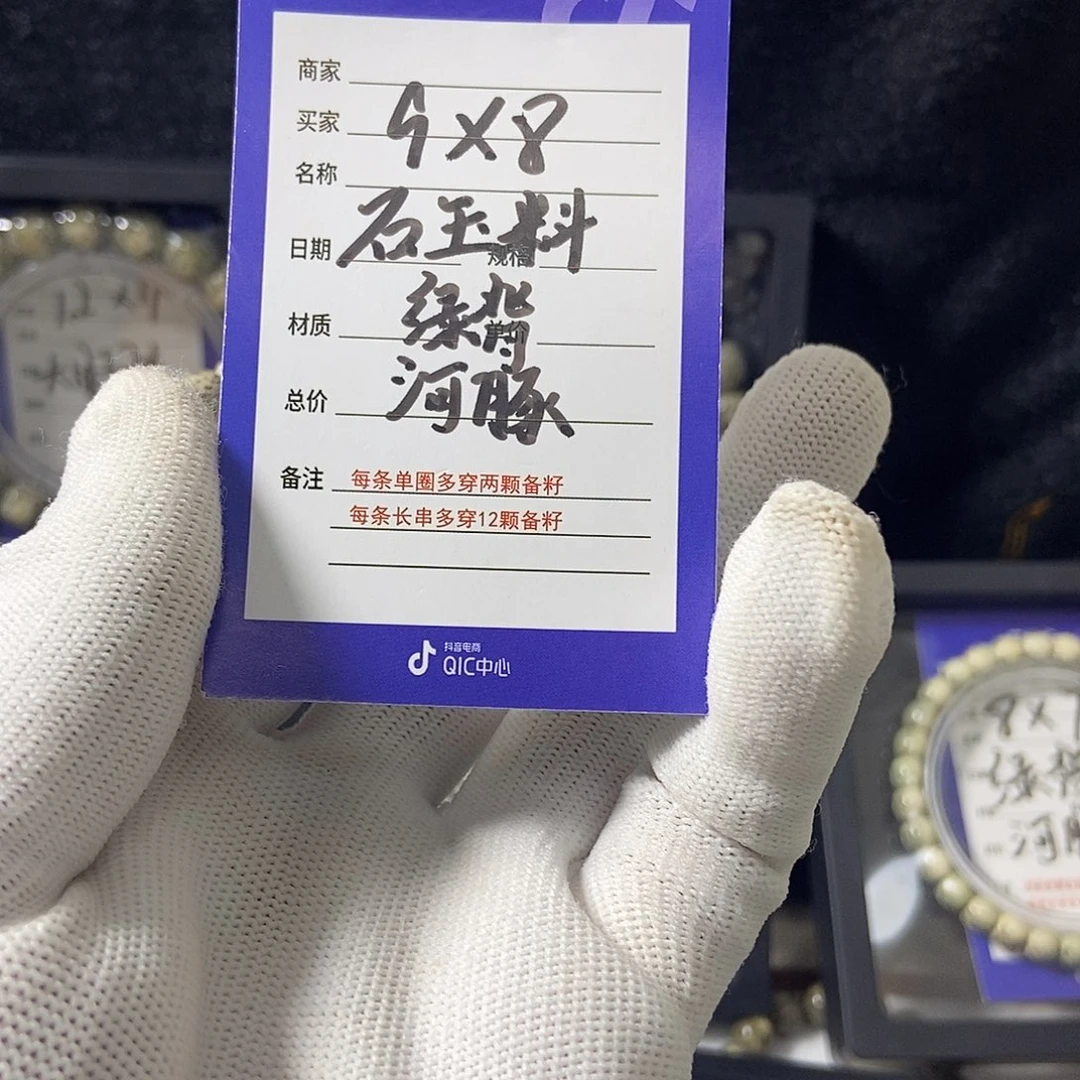 商家
买家
9X8
名称
石玉料
日期
规格
绿背
材质
单价
河豚
总价
备注
每条单圈多穿两颗备籽
每条长串多穿12颗备籽
抖音电商
QIC中心
12X11
8X
绿背
河